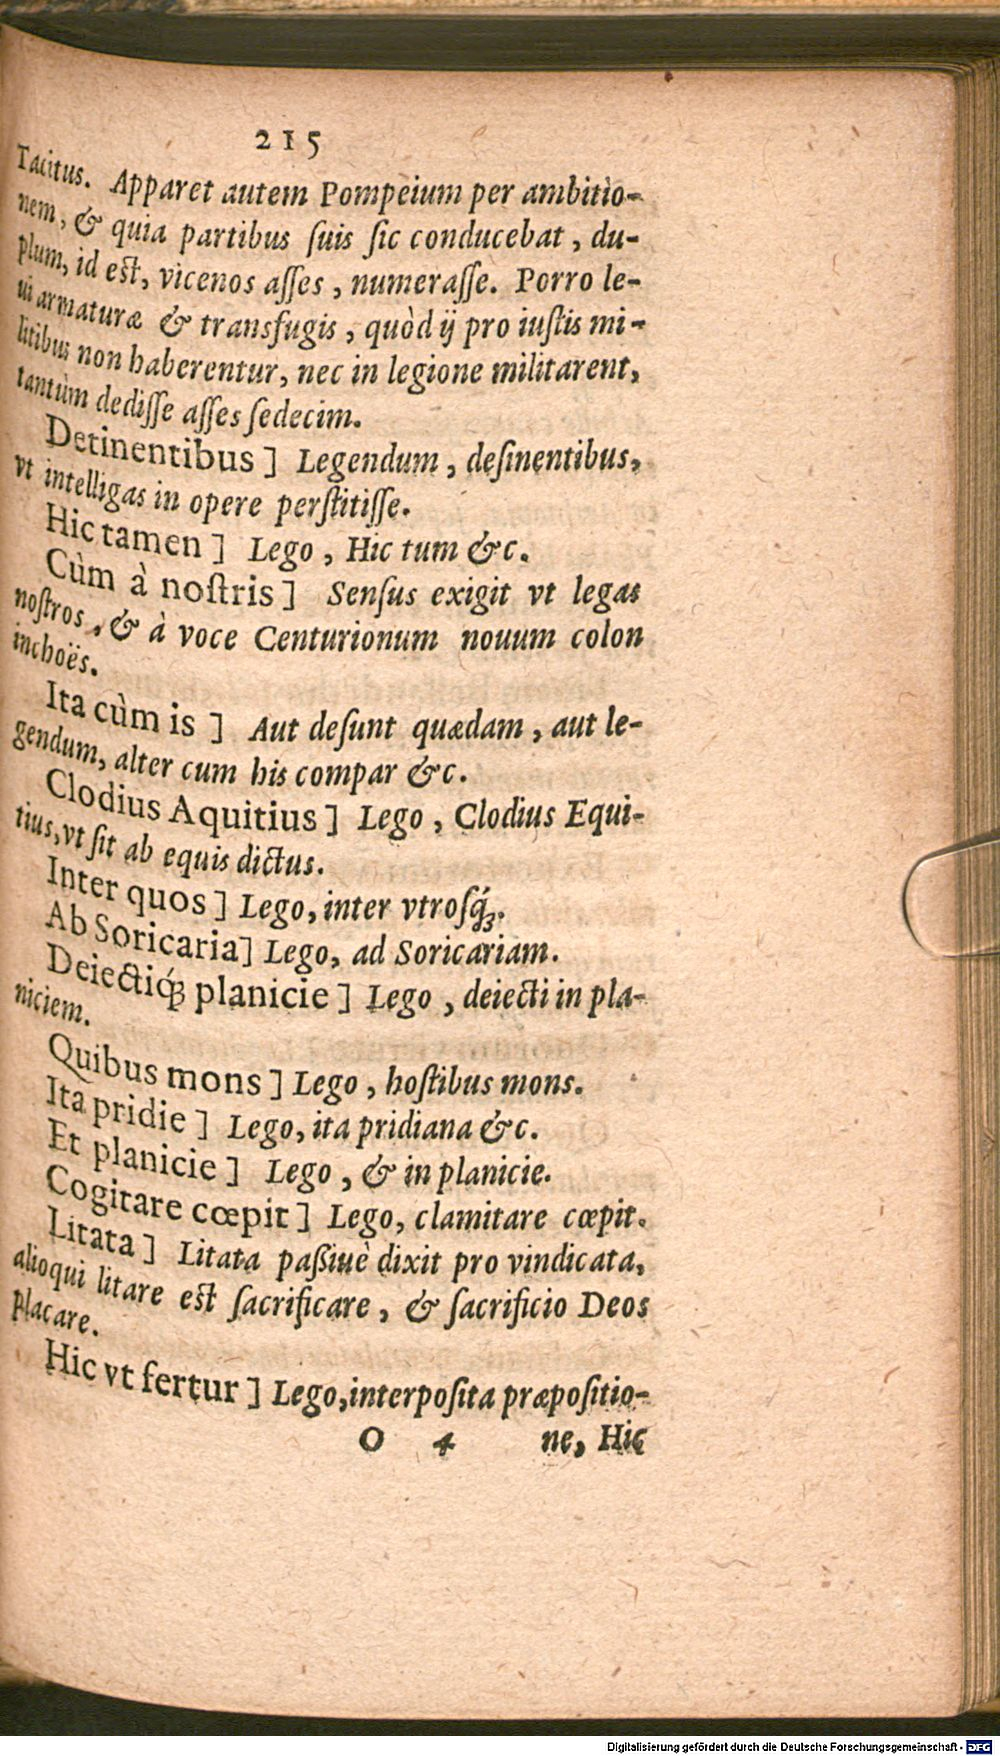 215
Tacitus. Apparet autem Pompeium per ambitio-
nem, & quia partibus ſuis ſic conducebat, du-
plum, id eſt, vicenos aſſes, numeraſſe. Porro le-
ui armaturæ & transfugis, quòd ij pro iuſtis mi-
litibus non haberentur, nec in legione militarent,
tantùm dediſſe aſſes ſedecim.
Detinentibus] Legendum, deſinentibus,
vt intelligas in opere perſtitiſſe.
Hic tamen] Lego, Hic tum &c.
Cùm à noſtris] Senſus exigit vt legas
noſtros, & à voce Centurionum nouum colon
inchoës.
Ita cùm is] Aut deſunt quædam, aut le-
gendum, alter cum his compar &c.
Clodius Aquitius] Lego, Clodius Equi-
tius, vt ſit ab equis dictus.
Inter quos] Lego, inter vtroſq́ꝫ.
Ab Soricaria] Lego, ad Soricariam.
Deiectiq́ꝫ planicie] Lego, deiecti in pla-
niciem.
Quibus mons] Lego, hoſtibus mons.
Ita pridie] Lego, ita pridiana &c.
Et planicie] Lego, & in planicie.
Cogitare cœpit] Lego, clamitare cœpit.
Litata] Litata paſſiuè dixit pro vindicata,
alioqui litare eſt ſacrificare, & ſacrificio Deos
placare.
Hic vt fertur] Lego, interpoſita præpoſitio-
O 4 ne, Hic
Digitalisierung gefördert durch die Deutsche Forschungsgemeinschaft - DFG